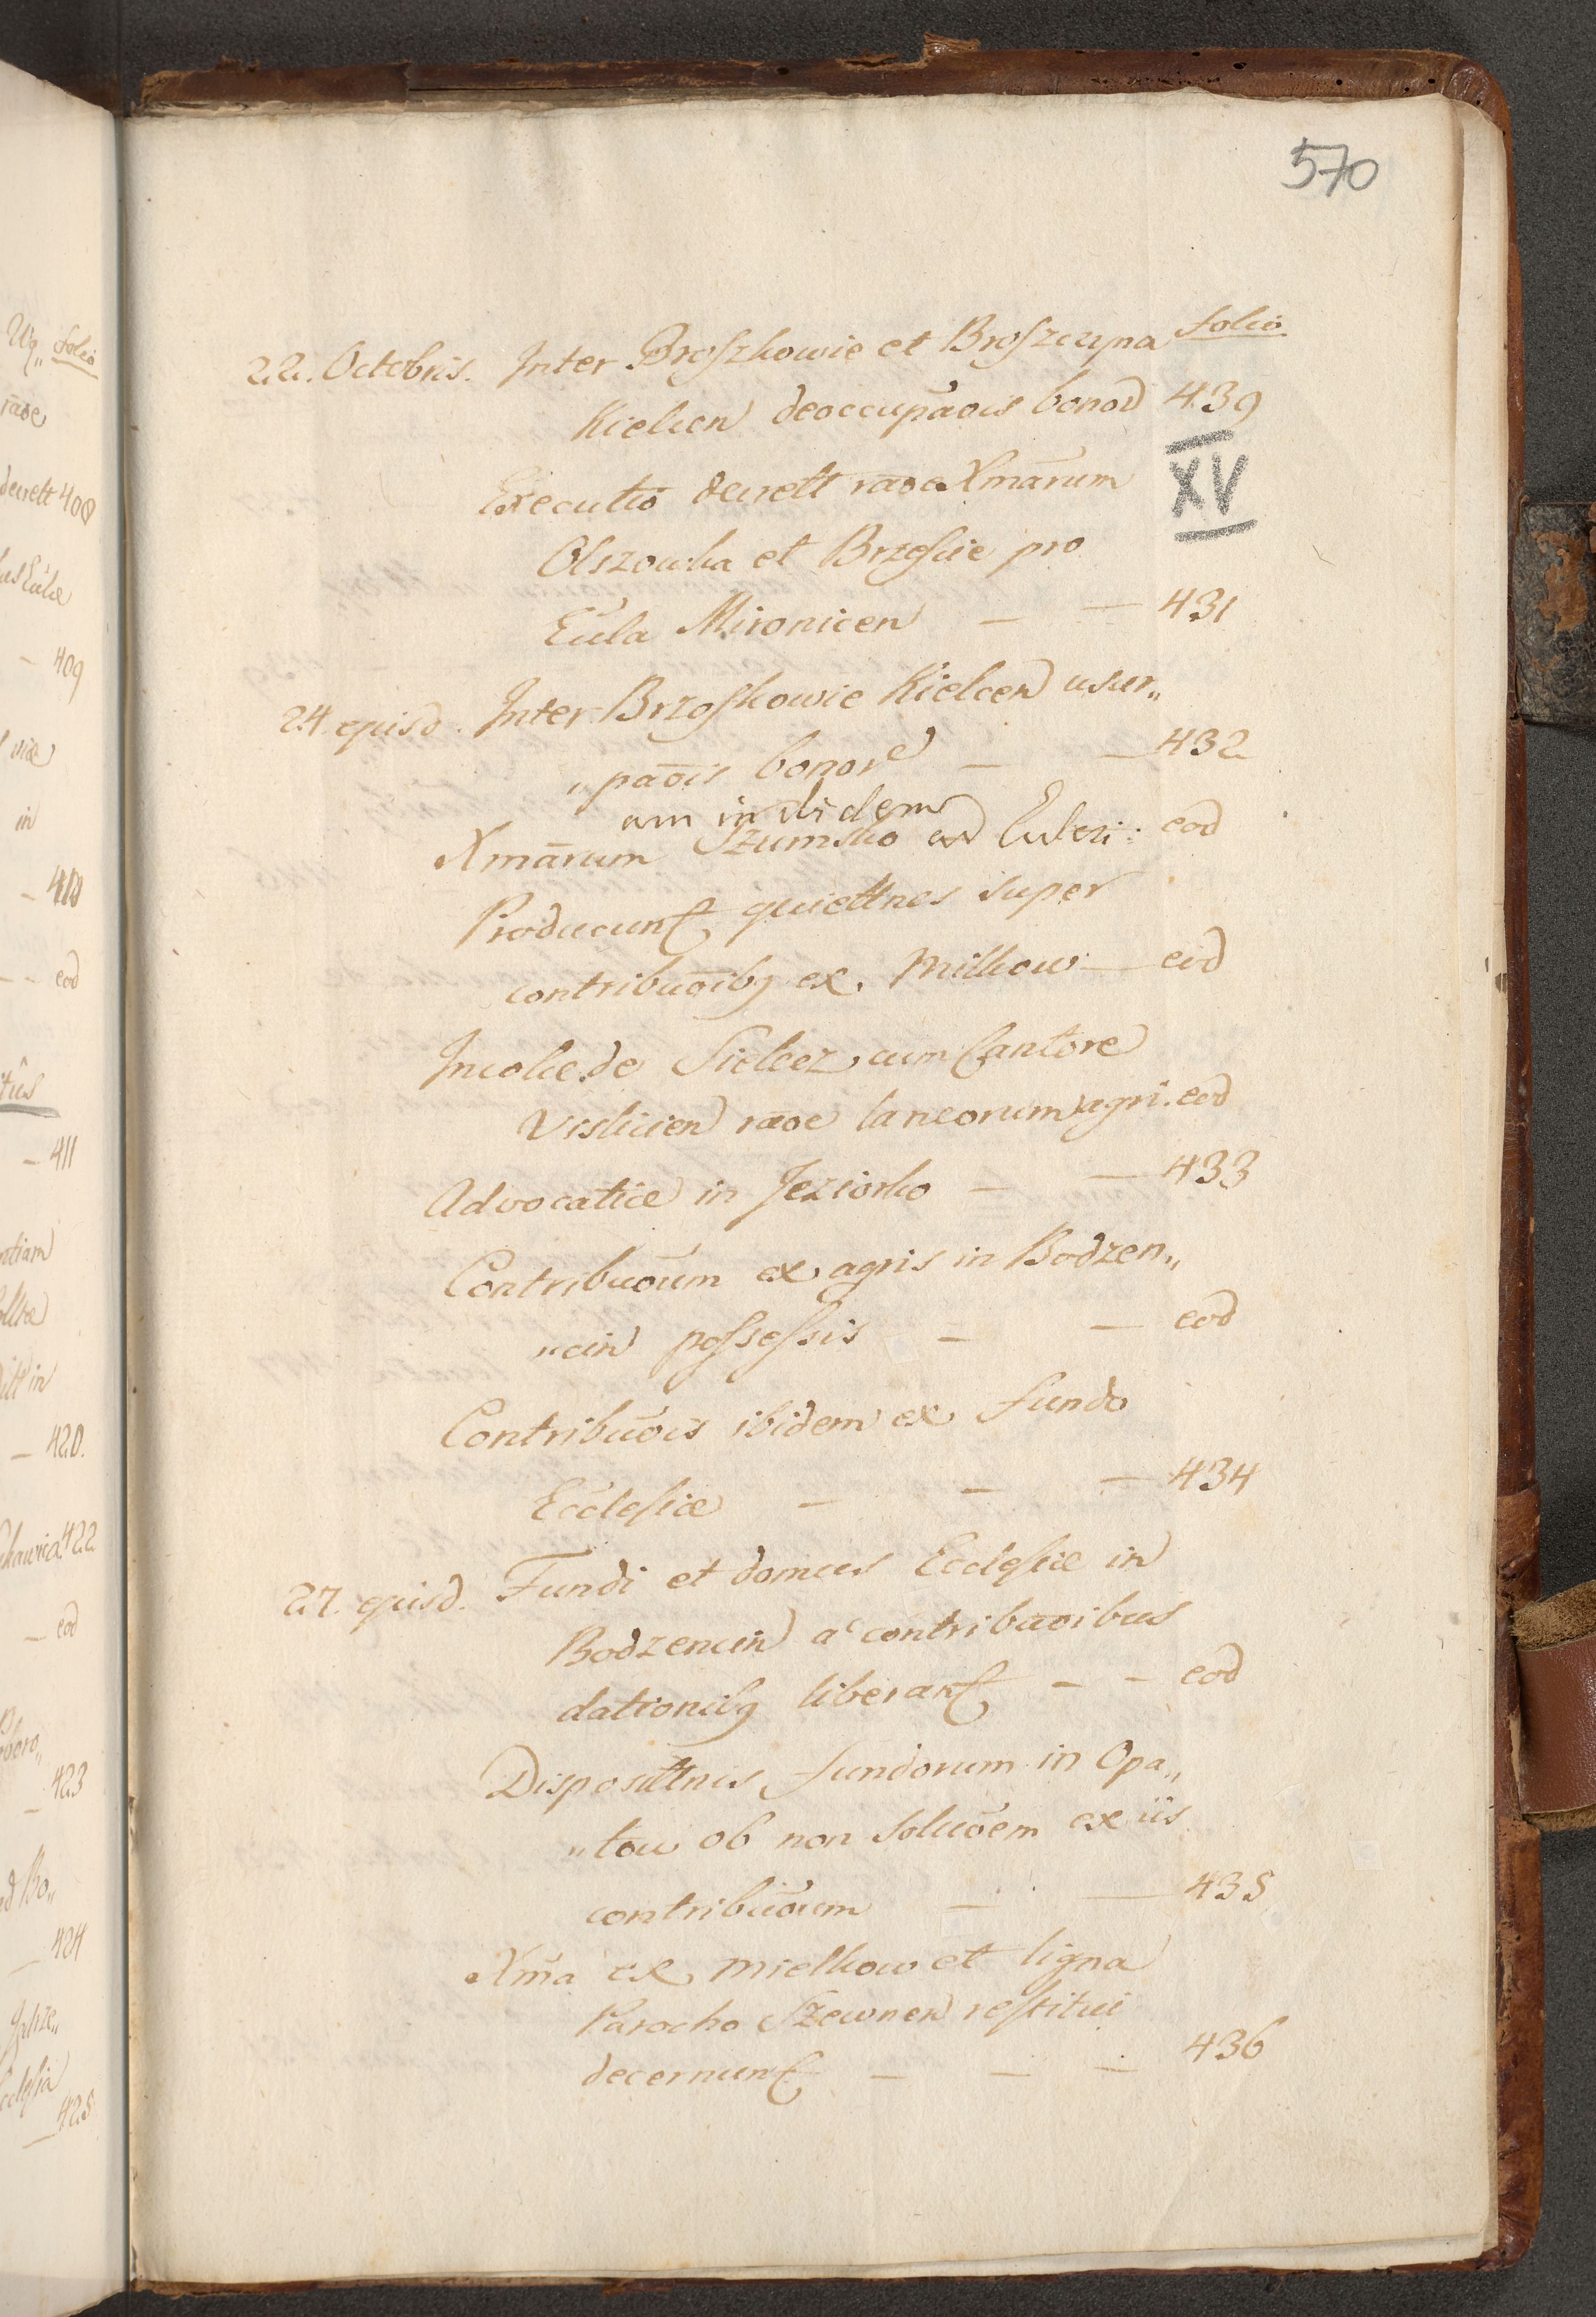 570
folio
22. Octobris. Inter Broſzkowie et Broſzczyna
Kielcen deoccupāois bonor 439
XV
Executio decrett rāoe Xmārum
Olszowka et Brzeſcie pro
Eccla Mironicen — — 431
24. ejusd. Inter Brzoſkowie Kielcen usur„
„pāois bonor — — 432
am in
Xmārum Szumsko eod
Producunt quiettnes super
contribuoibq ex Milkow — eod
Incolæ de Sielecz cum Cantore
Vislicien rāoe laneorum agri. eod
Advocatiæ in Jeziorko — — 433
Contribuoum ex agris in Bodzen„
„cin poſseſsis — — eod
Contribuois ibidem ex fundo
Eccleſiæ — — — 434
27. ejusd. Fundi et domus Eccleſiæ in
Bodzencin a contribuoibus
dationibq liberant — — eod
Disposittnis fundorum in Opa„
„tow ob non soluōem ex iis
contribuoum — — 435
Xma ex Mielkow et ligna
Parocho Szewnen reſtitui
decernunt — — — 436
Uq„ folio
rāoe
decrett 408
— 409
in
— 418
— eod
— 411
— 420.
422
— eod
— 423
— 424
— 425